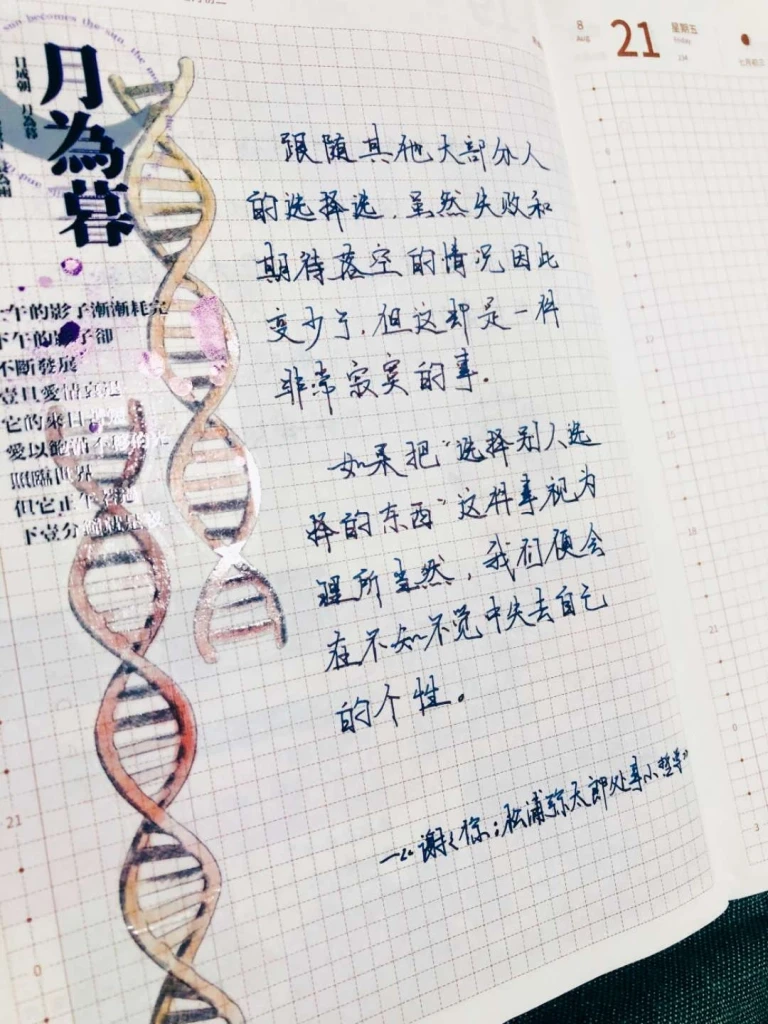 sun becomes the sun, the mo
日成朝 月為暮
月為暮
上午的影子漸漸耗完
下午的影子卻
不斷發展
壹旦愛情衰退
它的來日
愛以飽滿不移的光
照臨世界
但它正午
下壹分鐘就是夜
跟随其他大部分人
的选择选，虽然失败和
期待落空的情况因此
变少了，但这却是一件
非常寂寞的事.
如果把“选择别人选
择的东西”这件事视为
理所当然，我们便会
在不知不觉中失去自己
的个性。
—《谢谢你：松浦弥太郎处事小哲学》
8
Aug
21
星期五
Friday
234
七月初三
9
12
15
18
21
0
3
21
0